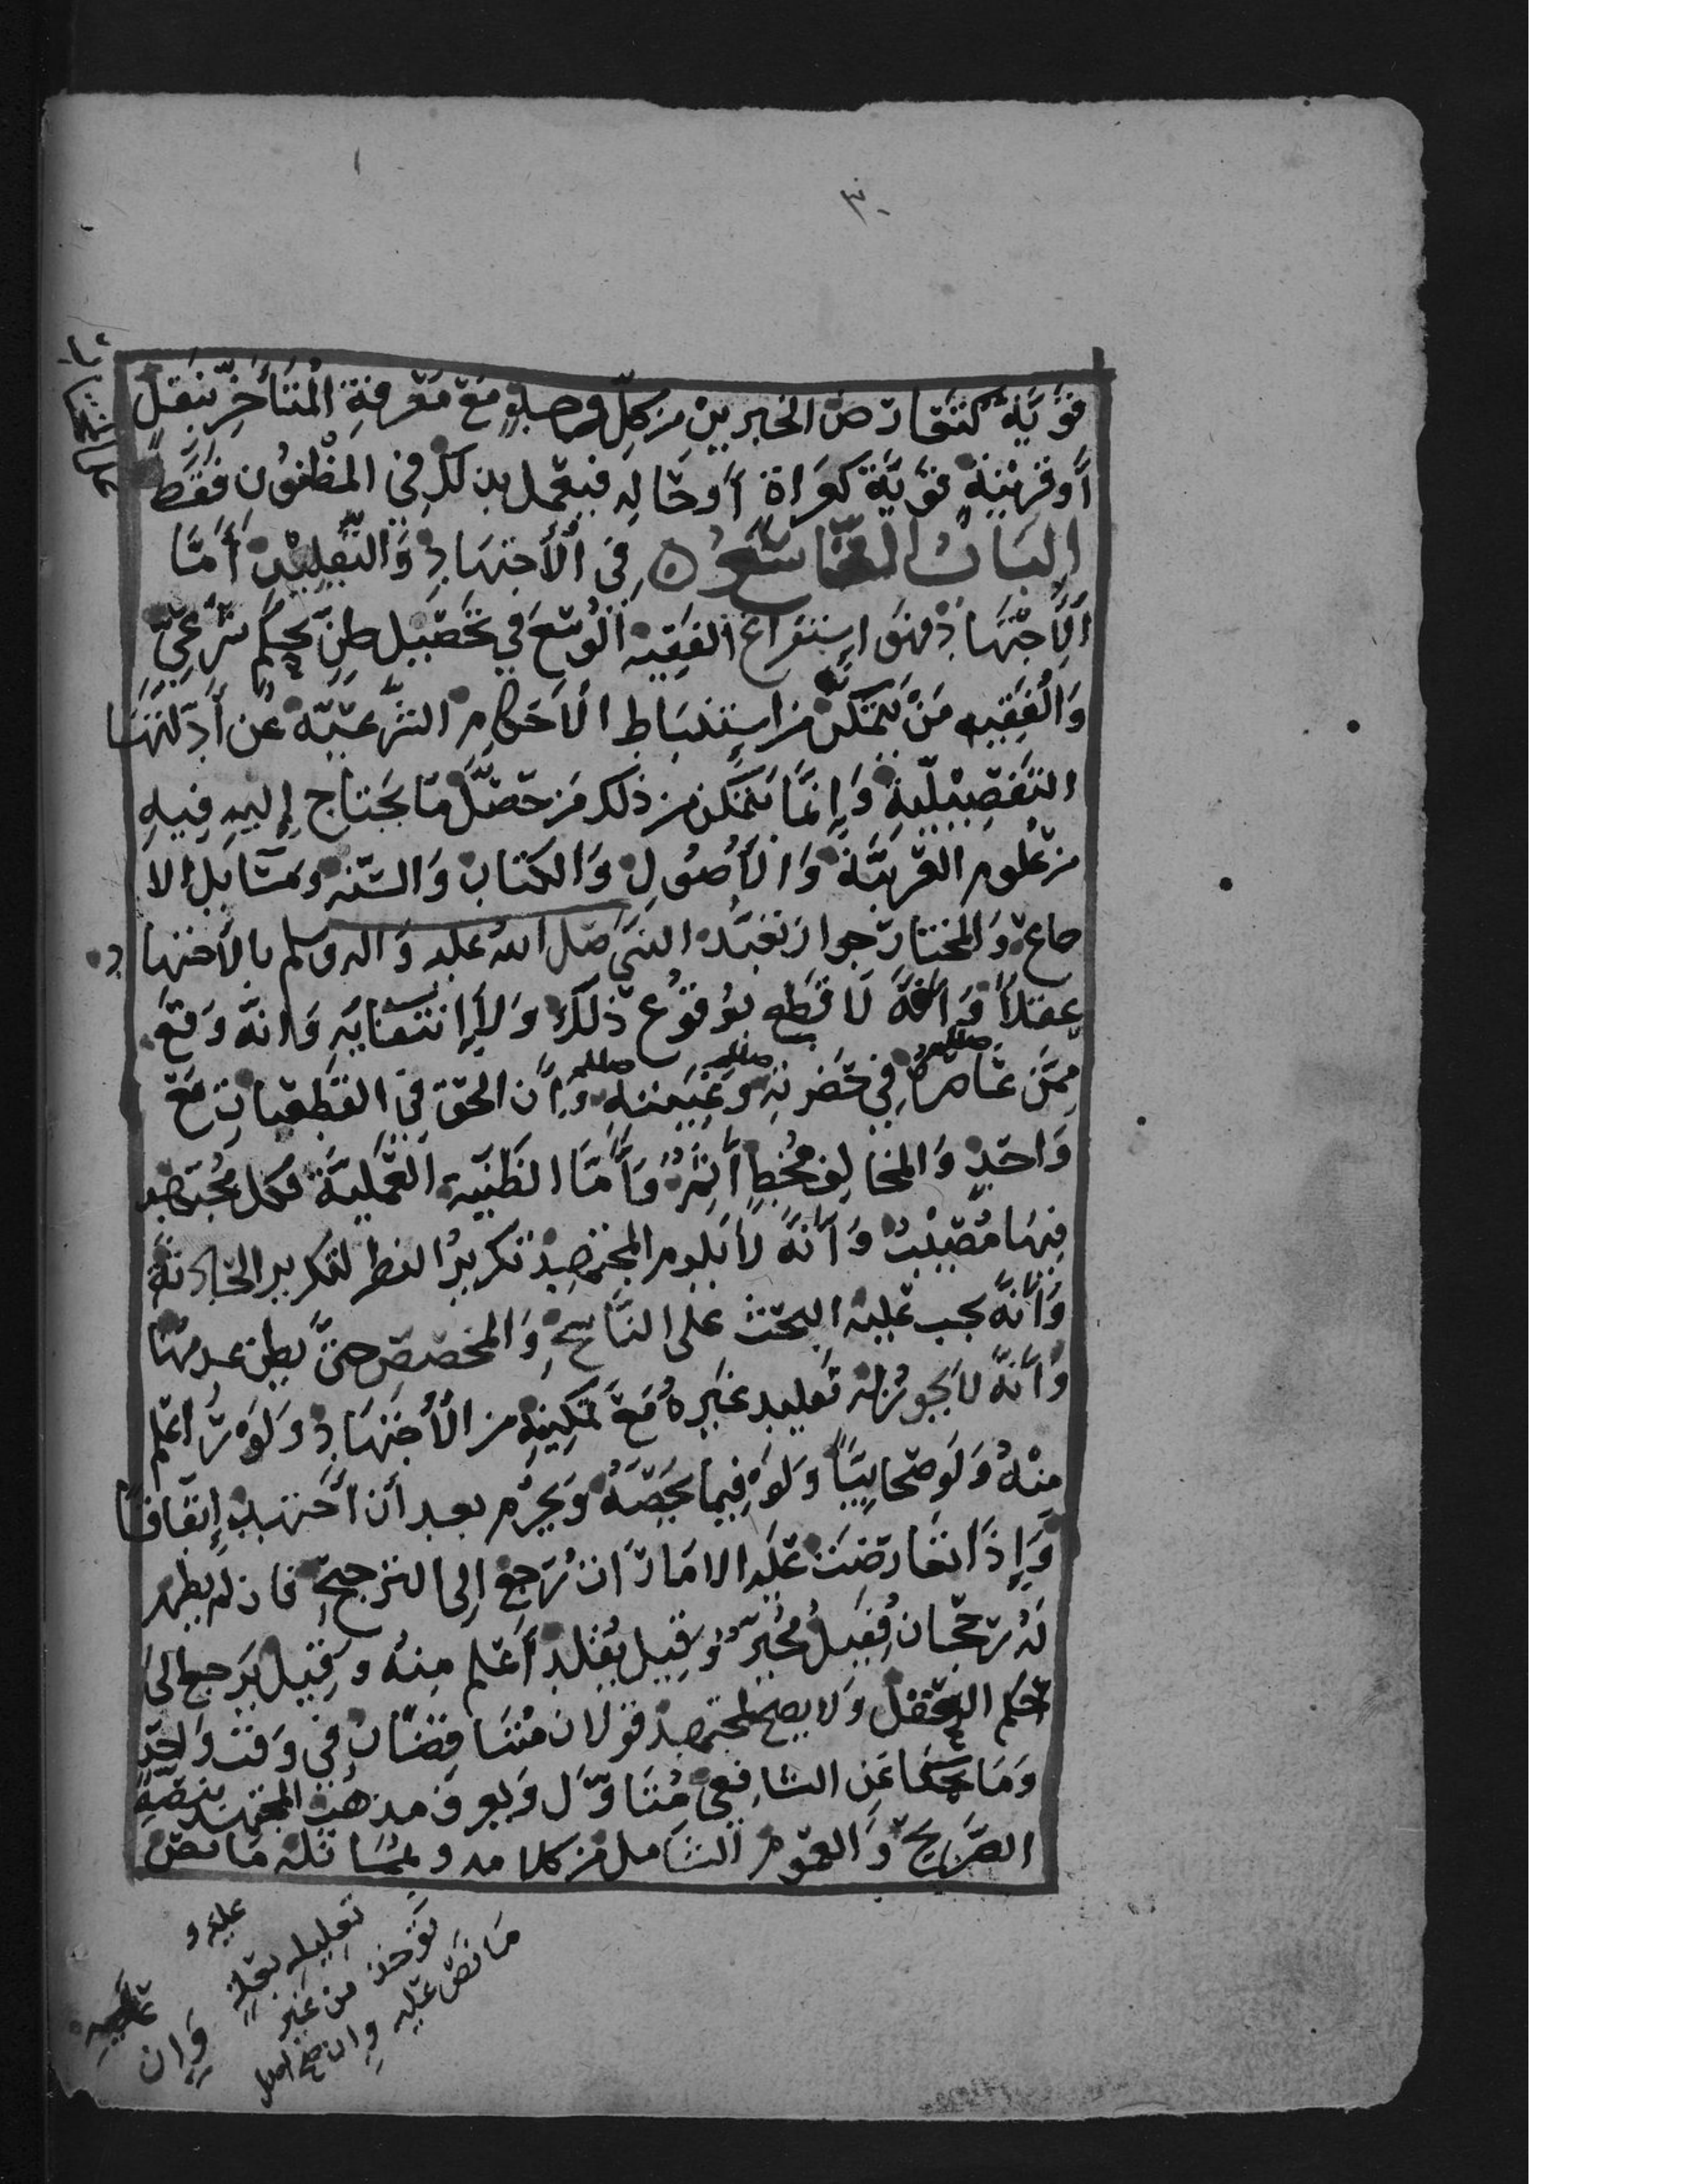 ٣٠
قوية كتعارض الخبرين من كل وجه مع معرفة المتأخر بنقل
أو قرينة قوية كغزاة أو حاله فيعمل بذلك في المظنون فقط
الباب التاسع في الاجتهاد والتقليد أما
الاجتهاد فهو استفراغ الفقيه الوسع في تحصيل ظن بحكم شرعي
والفقيه من يتمكن من استنباط الأحكام الشرعية عن أدلتها
التفصيلية وإنما يتمكن من ذلك من حصل ما يحتاج إليه فيه
من علوم العربية والأصول والكتاب والسنة ومسائل الا
جماع والمختار جواز تعبد النبي صلى الله عليه واله وسلم بالاجتهاد
عقلاً وأنه لا قطع بوقوع ذلك ولا انتفائه وانه وقع
ممن عاصره في حضرته وغيبته وأن الحق في القطعيات مع
واحد والمخالف مخطٍ آثم وأما الظنية العملية فكل مجتهد
فيها مصيب وأنه لا يلزم المجتهد تكرير النظر لتكرير الحادثة
وأنه يجب عليه البحث على الناسخ والمخصص حتى يظن عدمها
وأنه لا يجوز له تقليد غيره مع تمكنه من الاجتهاد ولو أعلم
منه ولو صحابياً ولو فيما يخصه ويحرم بعد أن اجتهد إتفاقاً
وإذا تعارضت عليه الامارات رجع إلى الترجيح فان لم يظهر
له رجحان فقيل يخير وقيل يقلد أعلم منه وقيل يرجع إلى
حكم العقل ولا يصح لمجتهد قولان متناقضان في وقت واحد
وما يحكا عن الشافعي متأول ويعرف مذهب المجتهد بنصه
الصريح والعموم الشامل من كلامه ومماثلة ما نص
عليه و
تعليله بعلة
توخذ من غير
ما نص عليه وان
وان